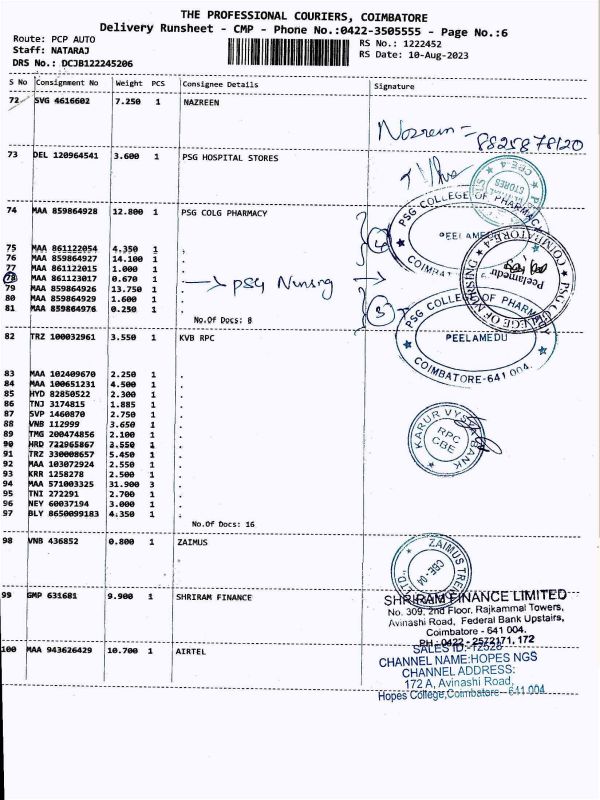 THE PROFESSIONAL COURIERS, COIMBATORE
Delivery Runsheet - CMP - Phone No.:0422-3505555 - Page No.:6
Route: PCP AUTO
Staff: NATARAJ
DRS No.: DCJB122245206
RS No.: 1222452
RS Date: 10-Aug-2023
S No Consignment No Weight PCS Consignee Details Signature
72 SVG 4616602 7.250 1 NAZREEN
Nazreen - 8825878120
73 DEL 120964541 3.600 1 PSG HOSPITAL STORES
CBE-4
STORES
74 MAA 859864928 12.800 1 PSG COLG PHARMACY
PSG COLLEGE OF PHARMACY
PEELAMEDU
4
75 MAA 861122054 4.350 1 .
76 MAA 859864927 14.100 1 .
77 MAA 861122015 1.000 1 .
78 MAA 861123017 0.670 1 .
PSG Nursing
79 MAA 859864926 13.750 1 .
80 MAA 859864929 1.600 1 .
81 MAA 859864976 0.250 1 .
No.Of Docs: 8
PSG COLLEGE OF NURSING
Peelamedu
COIMBATORE-4
3
PSG COLLEGE OF PHARMACY
PEELAMEDU
COIMBATORE-641 004.
82 TRZ 100032961 3.550 1 KVB RPC
83 MAA 102409670 2.250 1 .
84 MAA 100651231 4.500 1 .
85 HYD 82850522 2.300 1 .
86 TNJ 3174815 1.885 1 .
87 SVP 1460870 2.750 1 .
88 VNB 112999 3.650 1 .
89 TMG 200474856 2.100 1 .
90 HRD 722965867 3.550 1 .
91 TRZ 330008657 5.450 1 .
92 MAA 103072924 2.550 1 .
93 KRR 1258278 2.500 1 .
94 MAA 571003325 31.900 3 .
95 TNI 272291 2.700 1 .
96 NEY 60037194 3.000 1 .
97 BLY 8650099183 4.350 1 .
No.Of Docs: 16
KARUR VYSYA BANK
RPC
CBE
98 VNB 436852 0.800 1 ZAIMUS
ZAIMUS
CBE-04
99 GMP 631681 9.900 1 SHRIRAM FINANCE
SHRIRAM FINANCE LIMITED
No. 309, 2nd Floor, Rajkammal Towers,
Avinashi Road, Federal Bank Upstairs,
Coimbatore - 641 004.
PH : 0422 - 2572171, 172
100 MAA 943626429 10.700 1 AIRTEL
SALES ID:-12528
CHANNEL NAME:HOPES NGS
CHANNEL ADDRESS:
172 A, Avinashi Road,
Hopes College,Coimbatore - 641 004